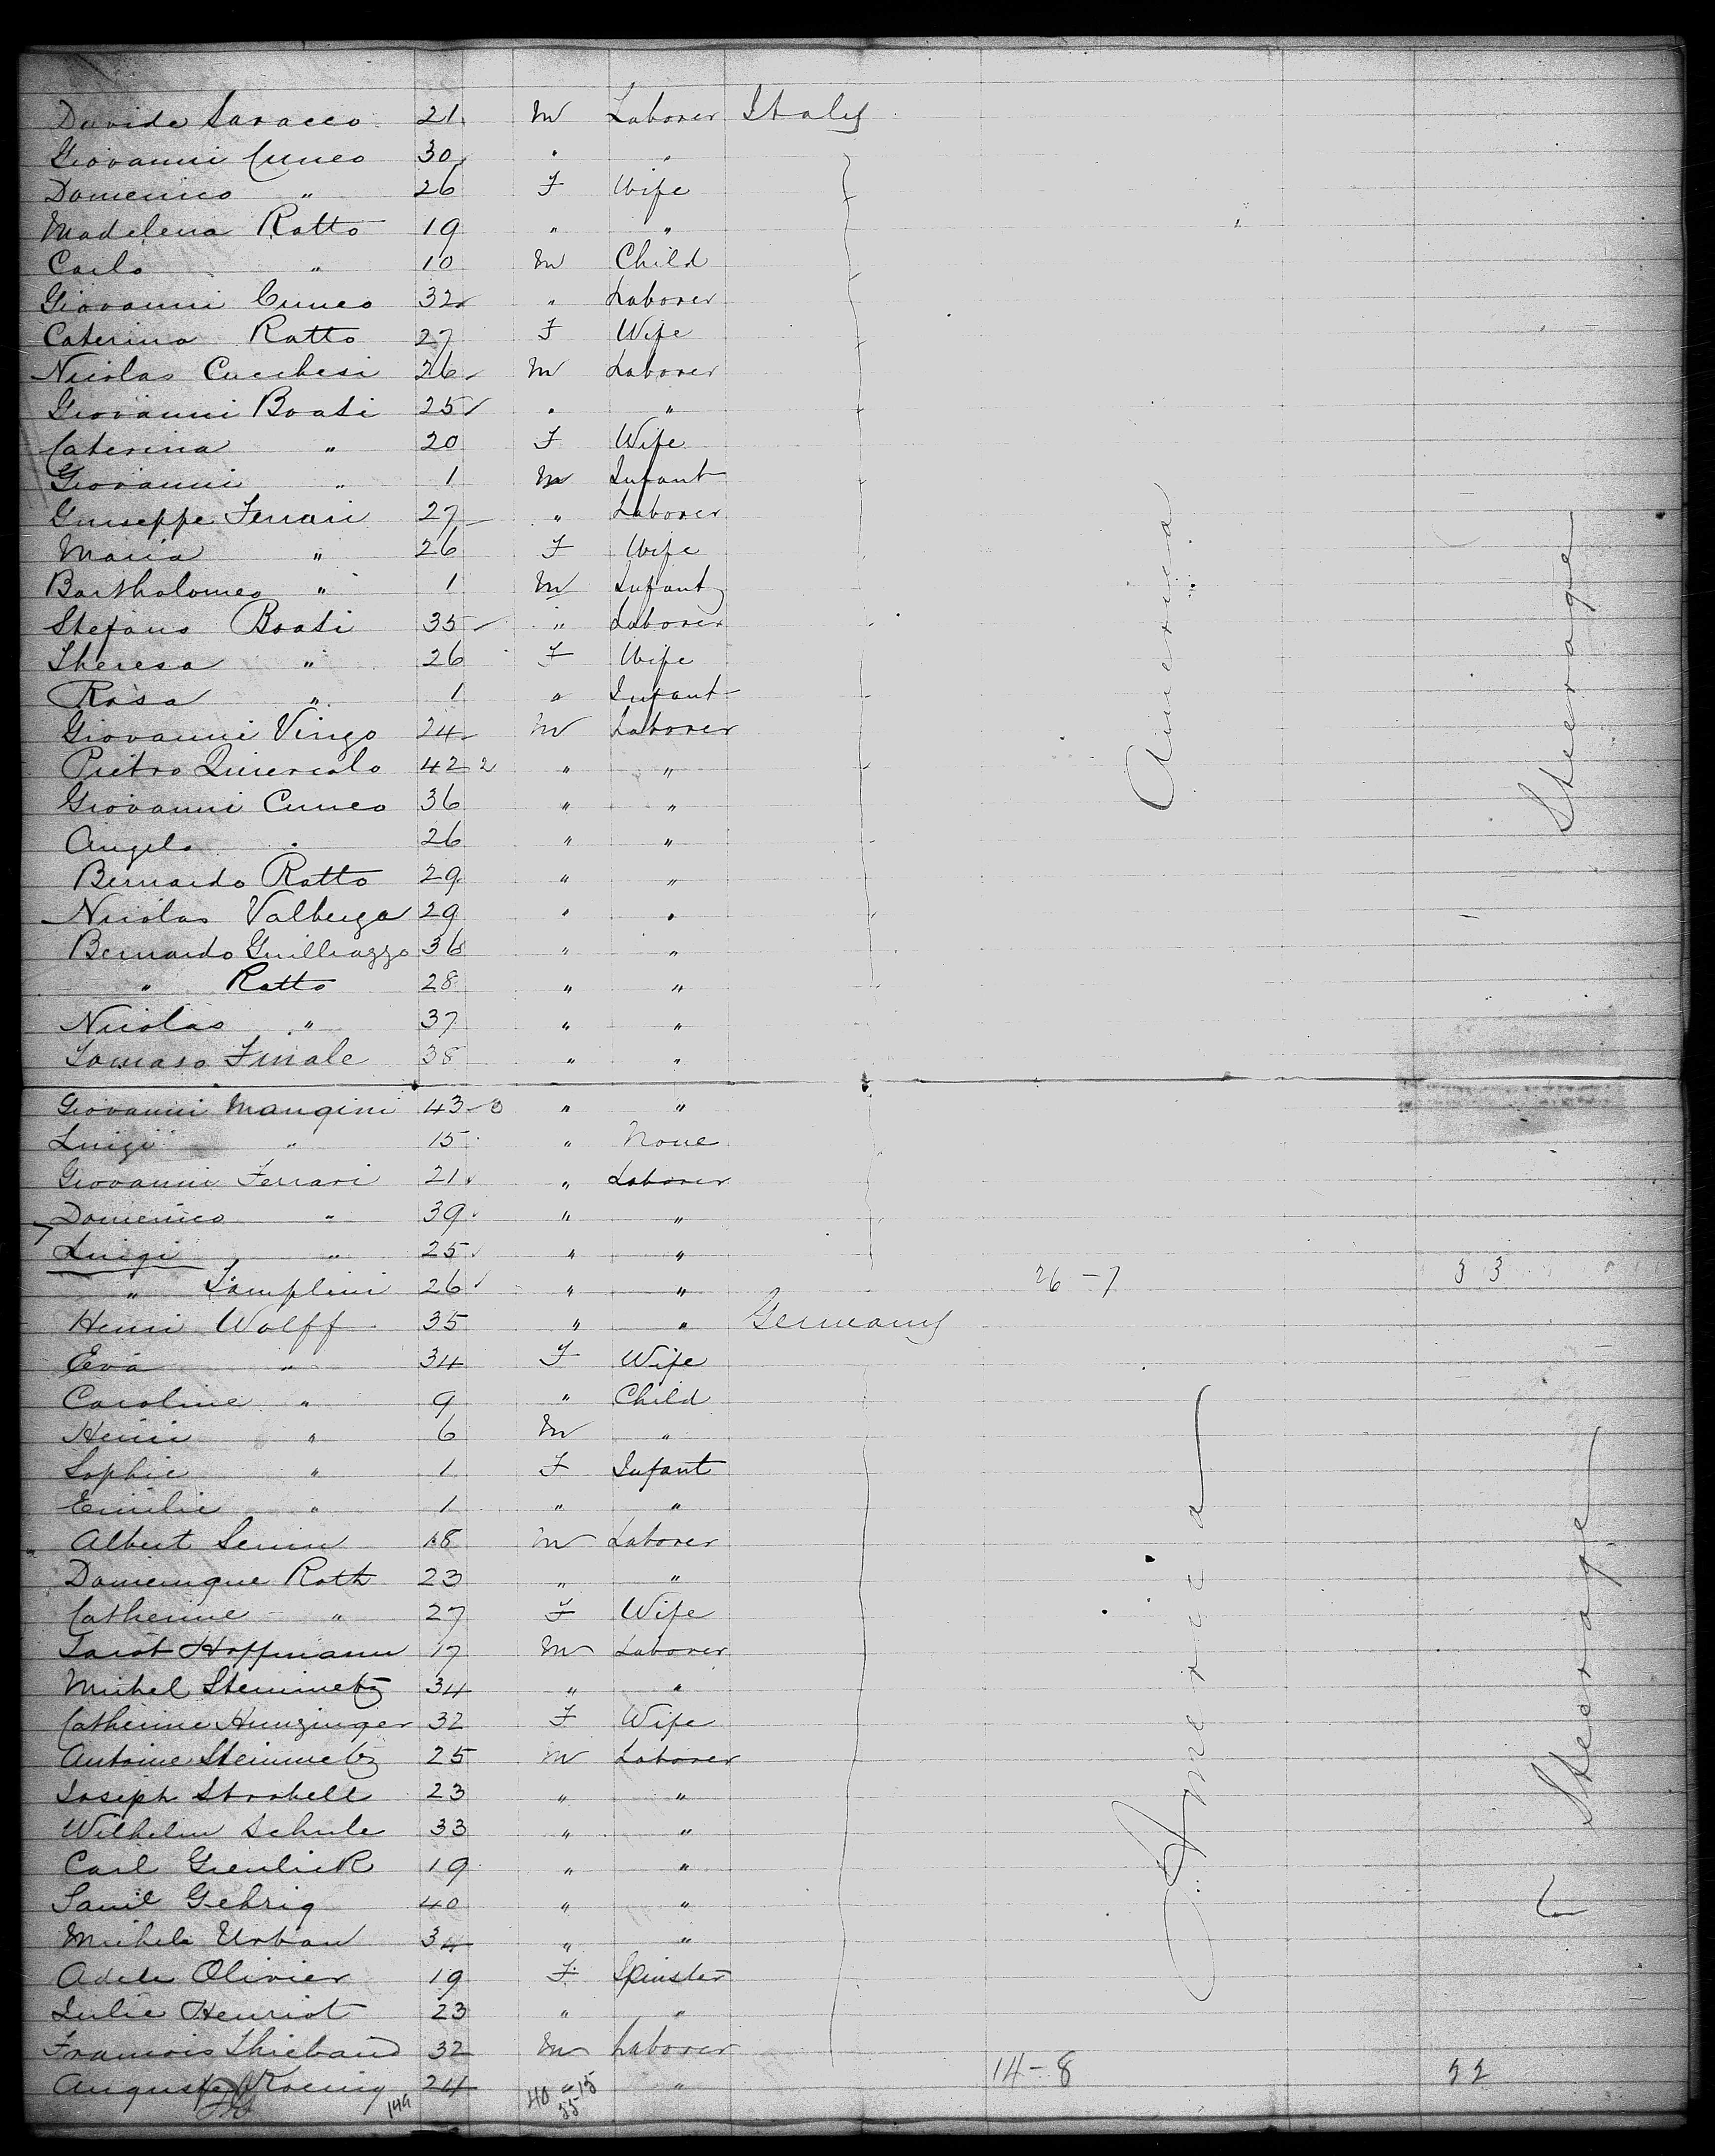 Davide Saracco 21 M Laborer Italy
Giovanni Cuneo 30 " "
Domenico " 26 F Wife
Madelena Ratto 19 " "
Carlo " 10 M Child
Giovanni Cuneo 32 " Laborer
Caterina Ratto 27 F Wife
Nicolas Cucchesi 26 M Laborer
Giovanni Boati 25 " "
Caterina " 20 F Wife
Giovanni " 1 M Infant
Guiseppe Ferrari 27 " Laborer
Maria " 26 F Wife
Bartholomeo " 1 M Infant
Stefano Boati 35 " Laborer
Theresa " 26 F Wife
Rosa " 1 " Infant
Giovanni Virgo 24 M Laborer
Pietro 42 " "
Giovanni Cuneo 36 " "
Angelo " 26 " "
Bernardo Ratto 29 " "
Nicolas Valberga 29 " "
Bernardo 36 " "
" Ratto 28 " "
Nicolas " 37 " "
Tomaso Finale 38 " "
America
Steerage
Giovanni Mangini 43 " "
Luigi " 15 " None
Giovanni Ferrari 21 " Laborer
Domenico " 39 " "
Luigi " 25 " "
" 26 " " 26-7 33
Henri Wolff 35 " " Germany
Eva " 34 F Wife
Caroline " 9 " Child
Henri " 6 M "
Sophie " 1 F Infant
Emilie " 1 " "
Albert 18 M Laborer
Domenique Roth 23 " "
Catherine " 27 F Wife
Jacob Hoffmann 17 M Laborer
Michel Steinmetz 34 " "
Catherine Hunzinger 32 F Wife
Antoine Steinmetz 25 M Laborer
Joseph Strobell 23 " "
Wilhelm Schule 33 " "
Carl 19 " "
Gehrig 40 " "
Michele Urban 34 " "
Adele Olivier 19 F Spinster
Julie Henriot 23 " "
Francois Thiebaud 32 M Laborer
Auguste Koenig 24 " " 14-8 22
America
Steerage
149
40 15
55